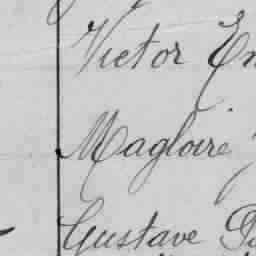 Victor
Magloire
Gustave